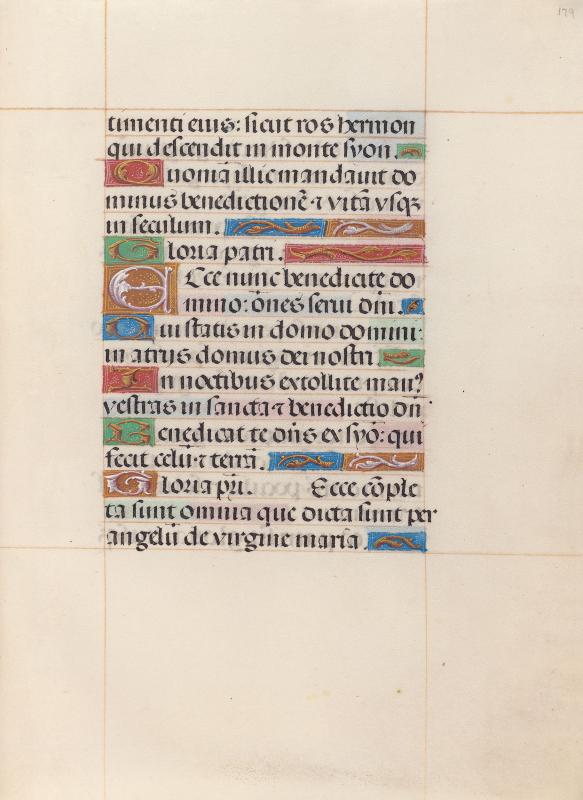 179
timenti eius: sicut ros hermon
qui descendit in monte syon.
Quoniā illic mandavit do
minus benedictionē ⁊ vitā vsq3
in seculum.
Gloria patri.
Ecce nunc benedicite do
mino: ōnes serui dn̄i.
Qui statis in domo domini:
in atrys domus dei nostri
In noctibus extollite man9
vestras in sancta ⁊ benedictio dn̄
Benedicat te dn̄s ex syō: qui
fecit celū ⁊ terrā.
Gloria pr̄i. Ecce cōple
ta sunt omnia que dicta sunt per
angelū de virgine maria.